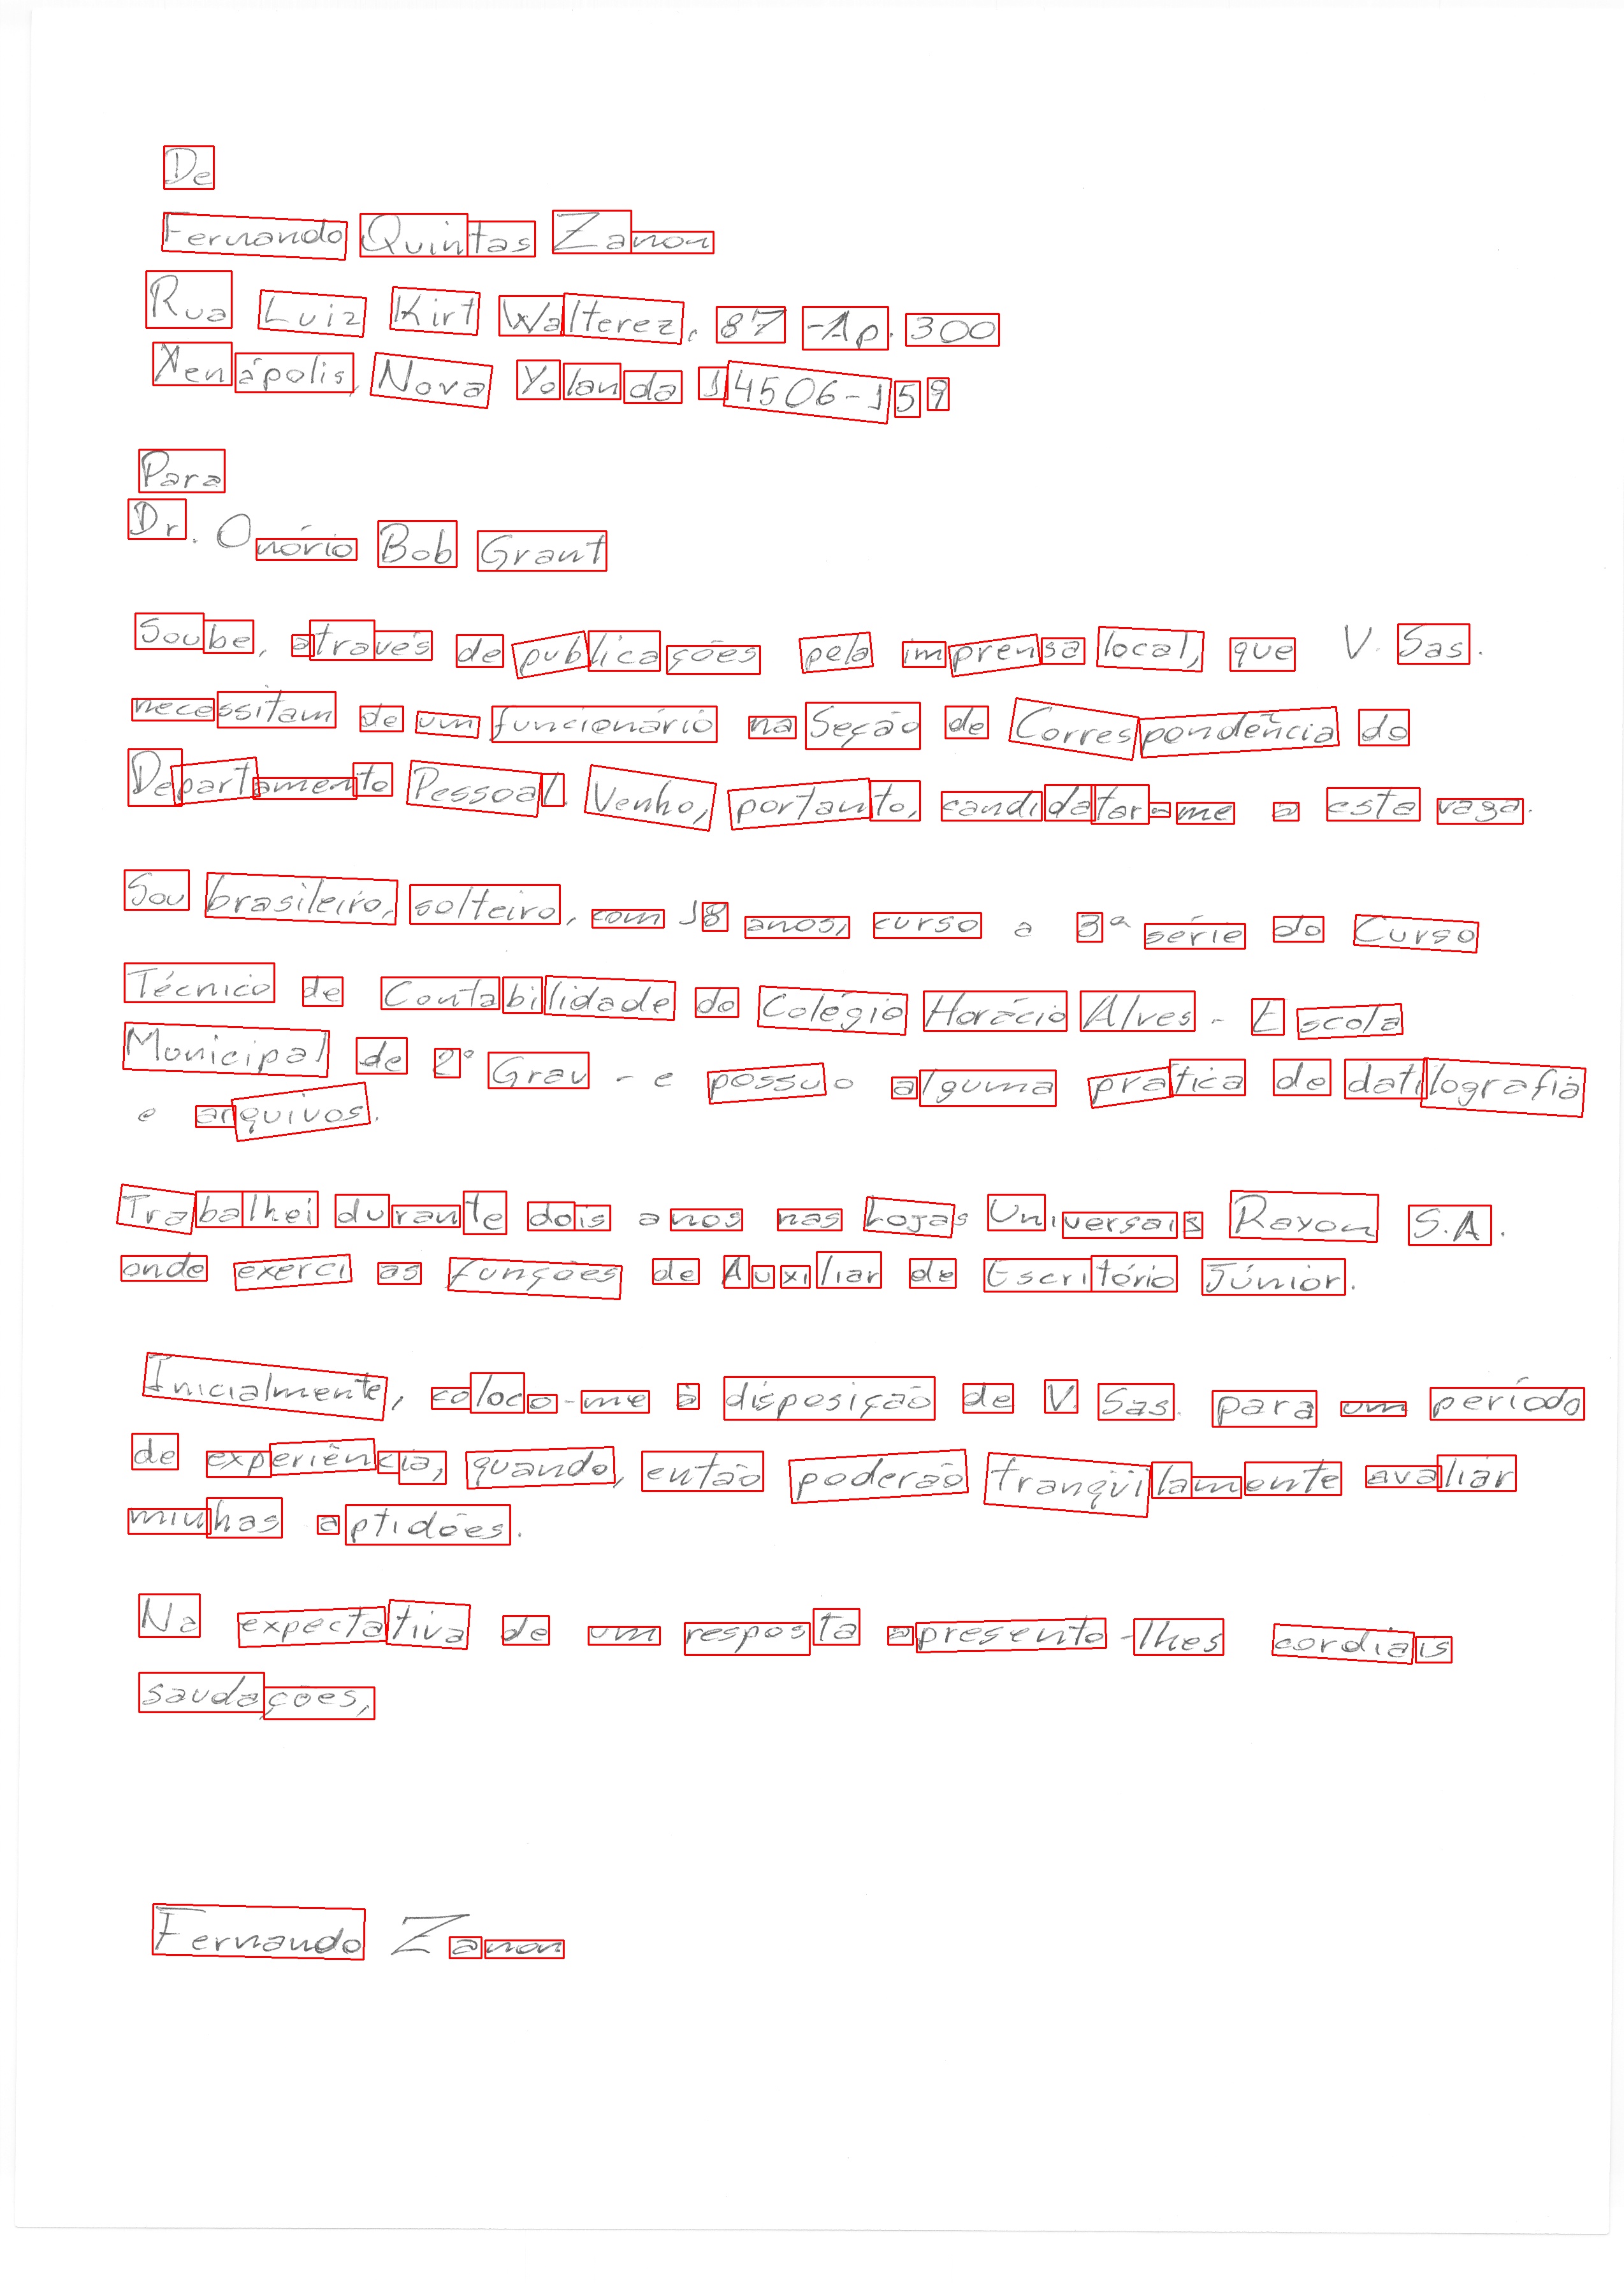 De
Fernando Quintas Zanon
Rua Luiz Kirt Walterez, 87 - Ap. 300
Xenápolis, Nova Yolanda 14506-159
Para
Dr. Onório Bob Grant
Soube, através de publicações pela imprensa local, que V. Sas.
necessitam de um funcionário na Seção de Correspondência do
Departamento Pessoal. Venho, portanto, candidatar-me a esta vaga.
Sou brasileiro, solteiro, com 18 anos, curso a 3ª série do Curso
Técnico de Contabilidade do Colégio Horácio Alves - Escola
Municipal de 2º Grau - e possuo alguma prática de datilografia
e arquivos.
Trabalhei durante dois anos nas Lojas Universais Rayon S.A.
onde exerci as funções de Auxiliar de Escritório Júnior.
Inicialmente, coloco-me à disposição de V. Sas. para um período
de experiência, quando, então poderão tranqüilamente avaliar
minhas aptidões.
Na expectativa de um resposta apresento-lhes cordiais
saudações,
Fernando Zanon